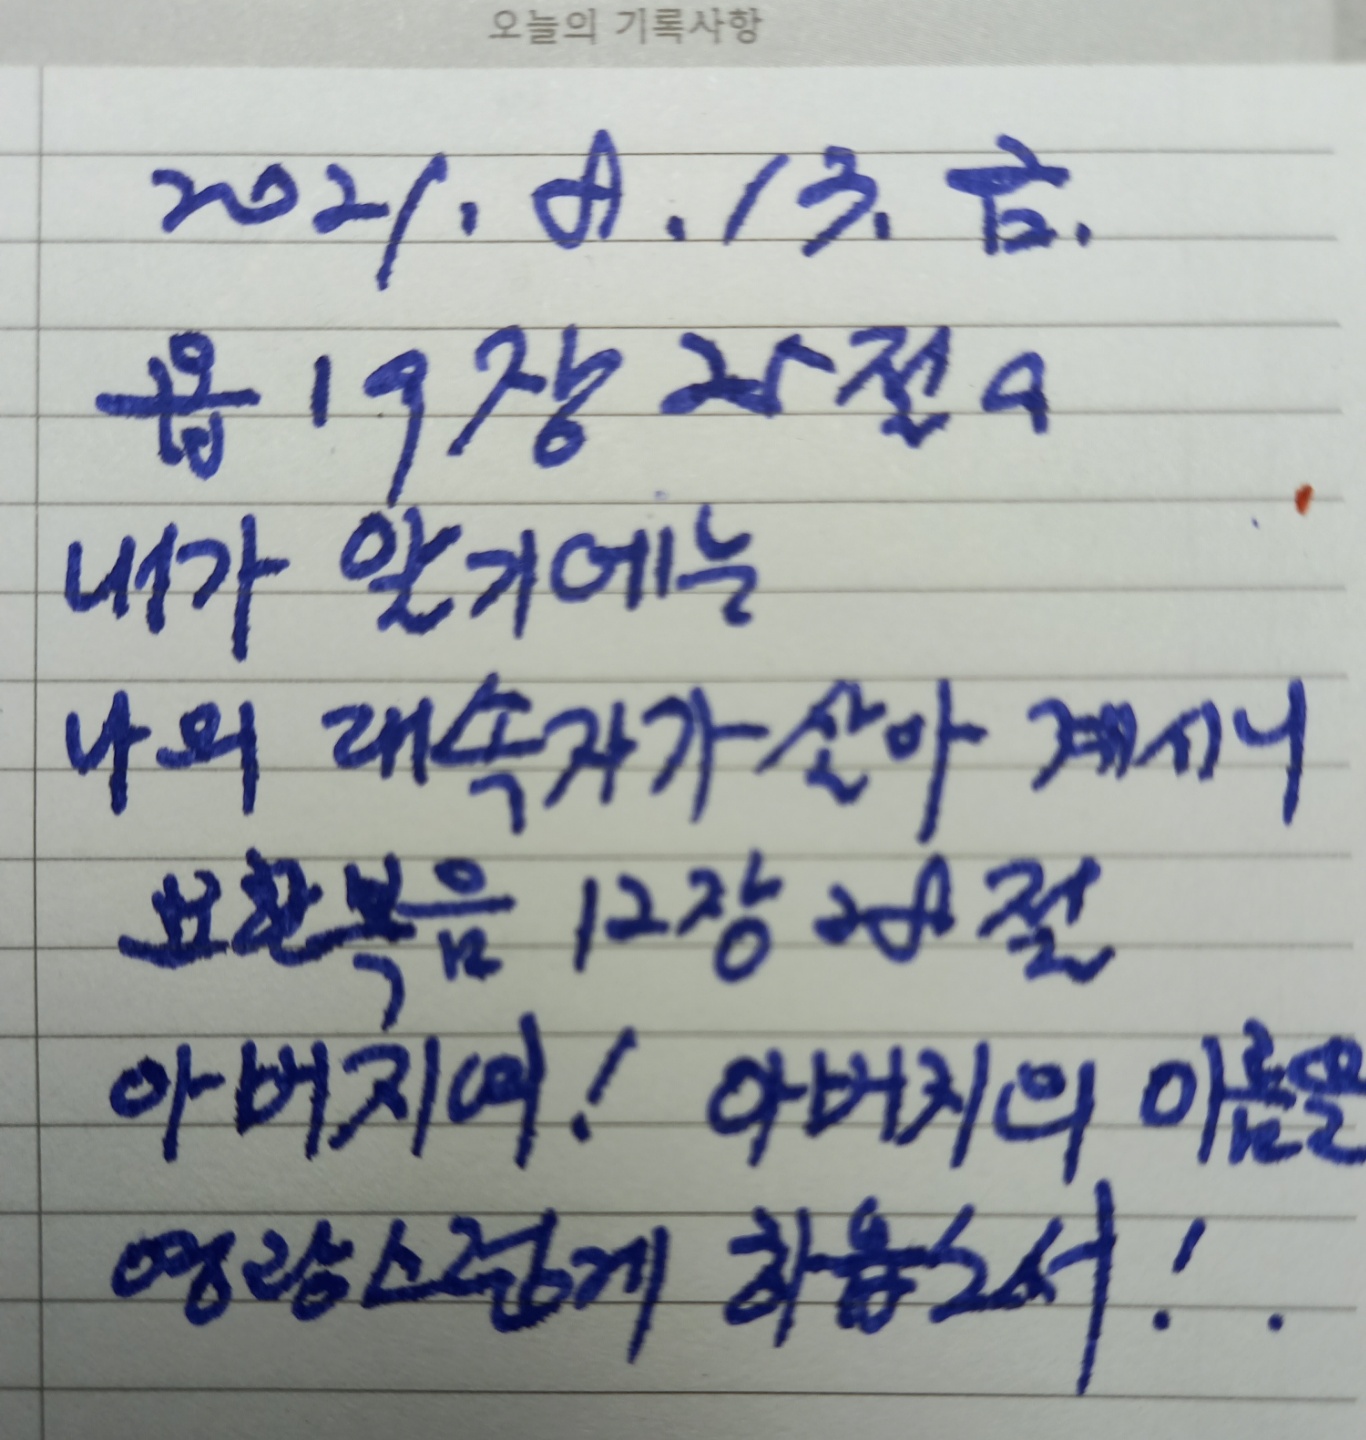 오늘의 기록사항
2021. 8. 13. 금.
욥 19장 25절a
내가 알기에는
나의 대속자가 살아 계시니
요한복음 12장 28절
아버지여! 아버지의 이름을
영광스럽게 하옵소서!.